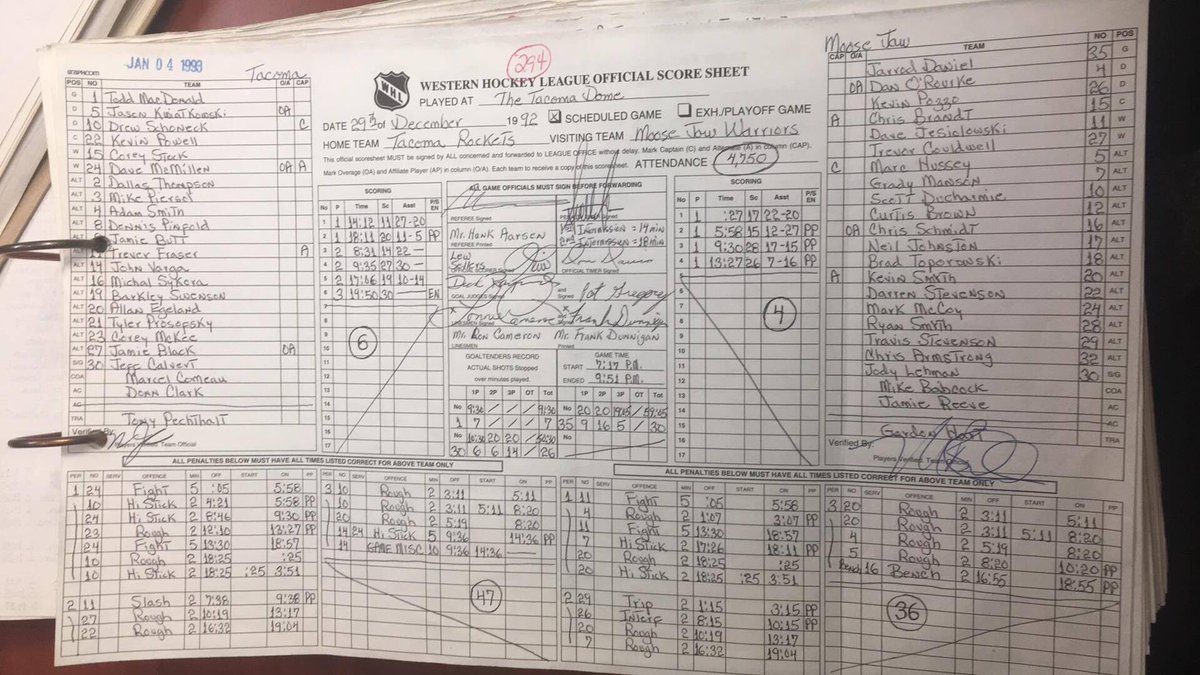 294
JAN 04 1993
Tacoma
WHL
WESTERN HOCKEY LEAGUE OFFICIAL SCORE SHEET
PLAYED AT The Tacoma Dome
DATE 29th of December 1992 X SCHEDULED GAME EXH./PLAYOFF GAME
HOME TEAM Tacoma Rockets VISITING TEAM Moose Jaw Warriors
This official scoresheet MUST be signed by ALL concerned and forwarded to LEAGUE OFFICE without delay. Mark Captain (C) and Alternate (A) in column (CAP).
Mark Overage (OA) and Affiliate Player (AP) in column (O/A). Each team to receive a copy of this scoresheet. ATTENDANCE 4,750
POS NO TEAM O/A CAP
G 1 Todd MacDonald
D 5 Jason Kwiatkowski OA
D 10 Drew Schoneck C
C 22 Kevin Powell
W 15 Corey Stock
W 24 Dave McMillen OA A
ALT 2 Dallas Thompson
ALT 3 Mike Piersol
ALT 4 Adam Smith
ALT 8 Dennis Pinfold
ALT Jamie Butt
ALT Trever Fraser A
ALT 14 John Varga
ALT 16 Michal Sykora
ALT 19 Barkley Swenson
ALT 20 Allan Egeland
ALT 21 Tyler Prosofsky
ALT 23 Corey McKee
ALT 27 Jamie Black OA
S/G 30 Jeff Calvert
COA Marcel Comeau
AC Donn Clark
AC
TRA Tony Pechthalt
Verified By:
Players Verified Team Official
SCORING
No P Time Sc Asst P/S EN
1 1 14:12 11 27-20
2 1 18:11 20 11-5 PP
3 2 8:31 14 22-
4 2 9:35 27 30-
5 2 17:06 19 10-14
6 3 19:50 30 — EN
7
8
9
10
11
12
13
14
15
16
17
6
ALL GAME OFFICIALS MUST SIGN BEFORE FORWARDING
REFEREE Signed
Mr. Hank Aarsen
REFEREE Printed
1st Intermission = 14 min
2nd Intermission = 18 min
OFFICIAL SCORER Signed
OFFICIAL TIMER Signed
GOAL JUDGES Signed
and Signed Pat Gregory
LINESMEN Signed
Mr. Ron Cameron Mr. Frank Dunnigan
LINESMEN Printed
GOALTENDERS RECORD
ACTUAL SHOTS Stopped
over minutes played.
GAME TIME
START 7:17 P.M.
ENDED 9:51 P.M.
1P 2P 3P OT Tot 1P 2P 3P OT Tot
No 9:30 / / / 9:30 No 20 20 19:05 / 59:05
1 7 / / / 7 35 9 16 5 / 30
No 10:30 20 20 / 50:30 No
30 6 6 14 / 26
SCORING
No P Time Sc Asst P/S EN
1 1 :27 17 22-20
2 1 5:58 15 12-27 PP
3 1 9:30 28 17-15 PP
4 1 13:27 26 7-16 PP
5
6
7
8
9
10
11
12
13
14
15
16
17
4
Moose Jaw
CAP O/A TEAM NO POS
Jarrod Daniel 35 G
OA Dan O'Rourke 4 D
Kevin Pozzo 26 D
A Chris Brandt 15 C
Dave Jesiolowski 11 W
Trevor Couldwell 27 W
C Marc Hussey 5 ALT
Grady Manson 7 ALT
Scott Ducharme 10 ALT
Curtis Brown 12 ALT
OA Chris Schmidt 16 ALT
Neil Johnston 17 ALT
Brad Toporowski 18 ALT
A Kevin Smyth 20 ALT
Darren Stevenson 22 ALT
Mark McCoy 24 ALT
Ryan Smith 28 ALT
Travis Stevenson 29 ALT
Chris Armstrong 32 ALT
Jody Lehman 30 S/G
Mike Babcock COA
Jamie Reeve AC
AC
Gorden Hart TRA
Verified By:
Players Verified Team Official
ALL PENALTIES BELOW MUST HAVE ALL TIMES LISTED CORRECT FOR ABOVE TEAM ONLY
PER NO SERV OFFENCE MIN OFF START ON PP
1 24 Fight 5 :05 5:58
10 Hi Stick 2 4:21 5:58 PP
24 Hi Stick 2 8:46 9:30 PP
23 Rough 2 12:10 13:27 PP
24 Fight 5 13:30 18:57
10 Rough 2 18:25 :25
10 Hi Stick 2 18:25 :25 3:51
2 11 Slash 2 7:38 9:38 PP
27 Rough 2 10:19 13:17
22 Rough 2 16:32 19:04
PER NO SERV OFFENCE MIN OFF START ON PP
3 10 Rough 2 3:11 5:11
10 Rough 2 3:11 5:11 8:20
20 Rough 2 5:19 8:20
14 24 Hi Stick 5 9:36 14:36 PP
14 GAME MISC 10 9:36 14:36 —
47
ALL PENALTIES BELOW MUST HAVE ALL TIMES LISTED CORRECT FOR ABOVE TEAM ONLY
PER NO SERV OFFENCE MIN OFF START ON PP
1 11 Fight 5 :05 5:58
4 Rough 2 1:07 3:07 PP
11 Fight 5 13:30 18:57
7 Hi Stick 2 17:26 18:11 PP
20 Rough 2 18:25 :25
20 Hi Stick 2 18:25 :25 3:51
2 29 Trip 2 1:15 3:15 PP
26 Interf 2 8:15 10:15 PP
20 Rough 2 10:19 13:17
7 Rough 2 16:32 19:04
PER NO SERV OFFENCE MIN OFF START ON PP
3 20 Rough 2 3:11 5:11
20 Rough 2 3:11 5:11 8:20
4 Rough 2 5:19 8:20
5 Rough 2 8:20 10:20 PP
Bench 16 Bench 2 16:55 18:55 PP
36